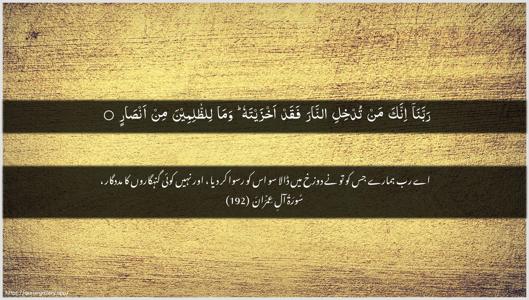 رَبَّنَاۤ اِنَّكَ مَنْ تُدْخِلِ النَّارَ فَقَدْ اَخْزَيْتَهٗ ؕ وَمَا لِلظّٰلِمِيْنَ مِنْ اَنْصَارٍ ○
اے رب ہمارے جس کو تو نے دوزخ میں ڈالا سو اس کو رسوا کر دیا ، اور نہیں کوئی گنہگاروں کا مددگار ،
سُورَۃُ آلِ عِمْرَانَ (192)